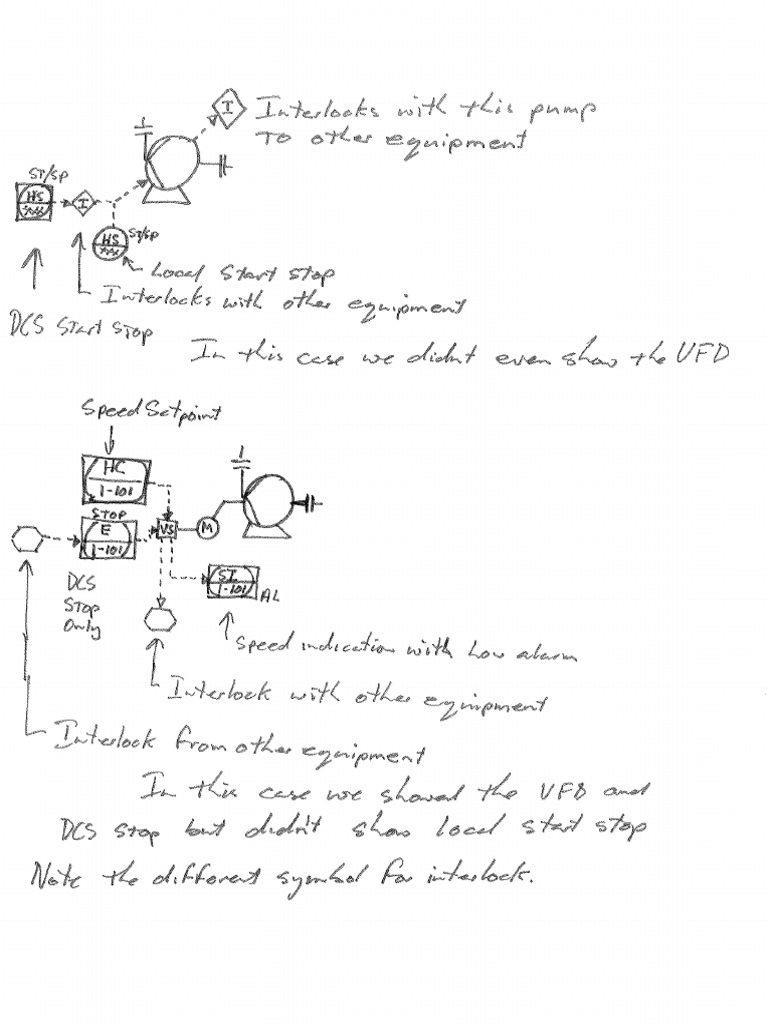 I Interlocks with this pump
to other equipment
ST/SP
HS
I
HS
ST/SP
Local start stop
Interlocks with other equipment
DCS start stop
In this case we didnt even show the VFD
Speed Setpoint
HC
1-101
STOP
E
1-101
VS
M
SI
1-101
AL
DCS
Stop
Only
Speed indication with Low alarm
Interlock with other equipment
Interlock from other equipment
In this case we showed the VFD and
DCS stop but didn't show local start stop
Note the different symbol for interlock.